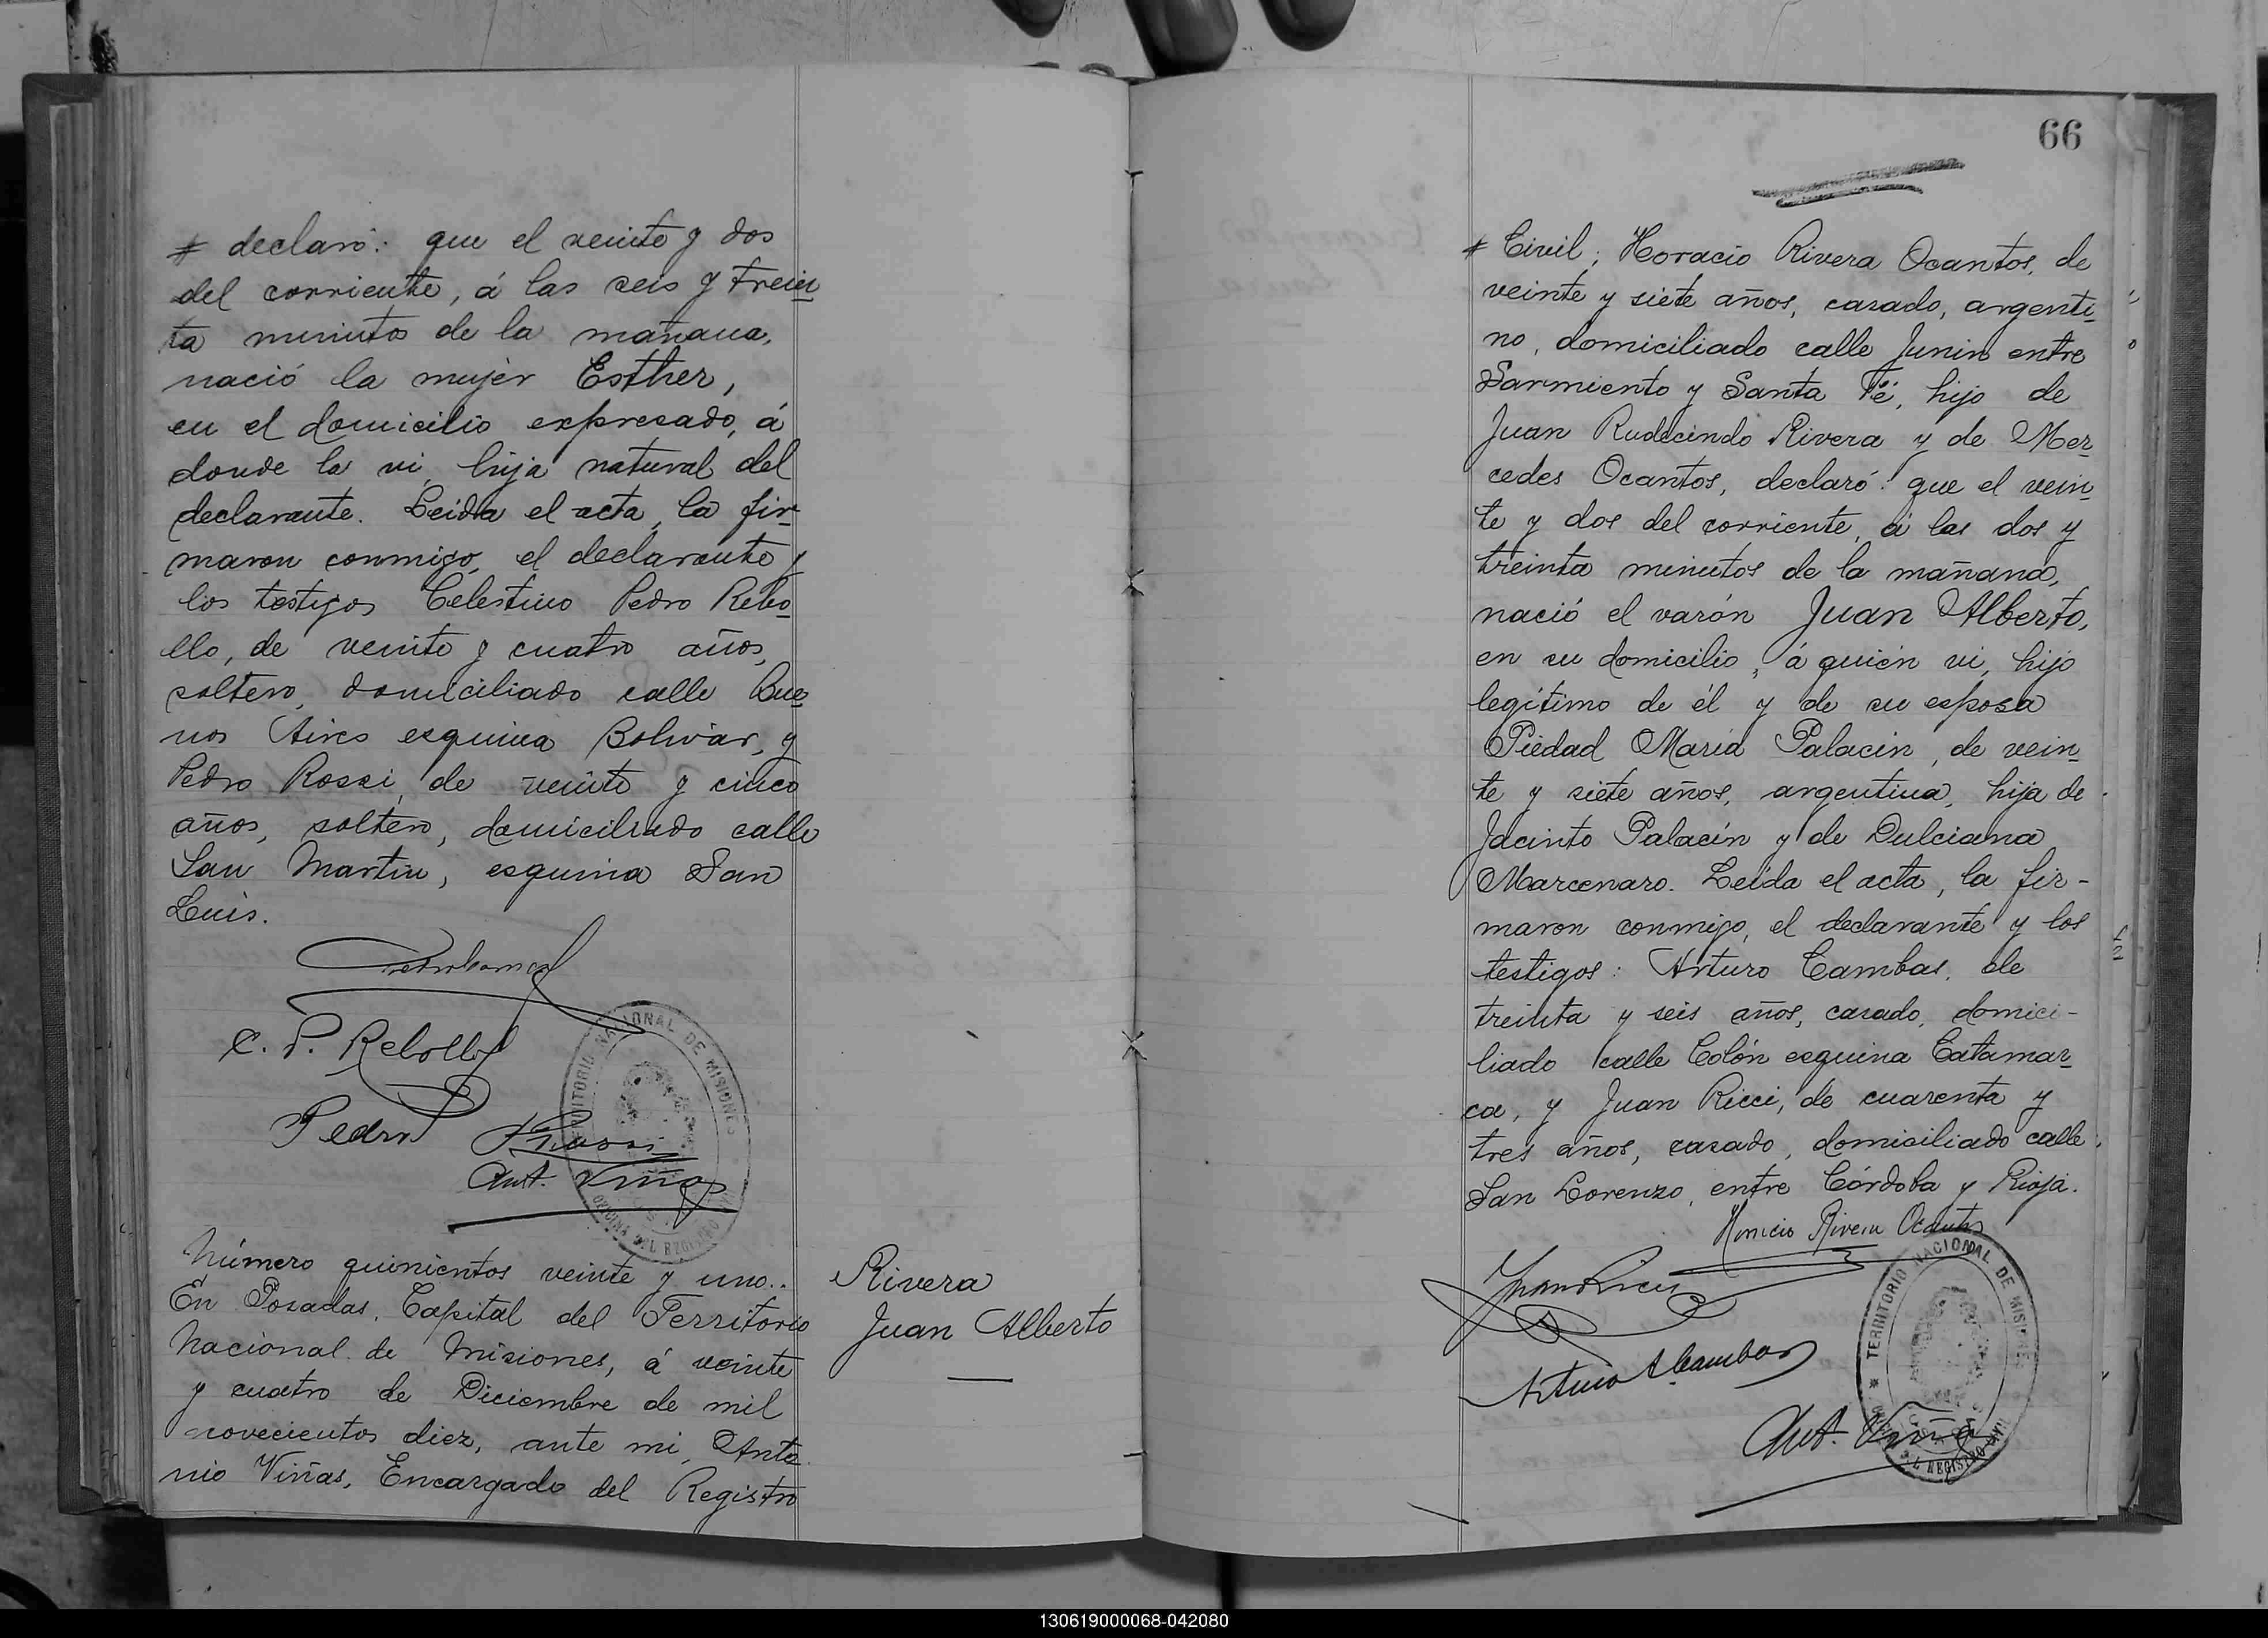 # declaró: que el veinte y dos
del corriente, á las seis y trein
ta minutos de la mañana,
nació la mujer Esther,
en el domicilio expresado, á
donde la vi, hija natural del
declarante. Leida el acta, la fir-
maron conmigo, el declarante y
los testigos Celestino Pedro Rebo
llo, de veinte y cuatro años,
soltero, domiciliado calle Bue
nos Aires esquina Bolivar, y
Pedro Rossi, de veinte y cinco
años, soltero, domiciliado calle
San Martin, esquina San
Luis.
C. P. Rebollo
Pedro Rossi
Ant. Viñas
TERRITORIO NACIONAL DE MISIONES
OFICINA DEL REGISTRO CIVIL
Número quinientos veinte y uno..
En Posadas, Capital del Territorio
Nacional de Misiones, á veinte
y cuatro de Diciembre de mil
novecientos diez, ante mi, Anto
nio Viñas, Encargado del Registro
Rivera
Juan Alberto
66
# Civil; Horacio Rivera Ocantos, de
veinte y siete años, casado, argenti-
no, domiciliado calle Junin entre
Sarmiento y Santa Fé, hijo de
Juan Rudecindo Rivera y de Mer
cedes Ocantos, declaró: que el vein
te y dos del corriente, á las dos y
treinta minutos de la mañana,
nació el varón Juan Alberto,
en su domicilio, á quién vi, hijo
legítimo de él y de su esposa
Piedad María Palacin, de vein
te y siete años, argentina, hija de
Jacinto Palacín y de Dulciana
Marcenaro. Leída el acta, la fir-
maron conmigo, el declarante y los
testigos: Arturo Cambas, de
treinta y seis años, casado, domici-
liado calle Colón esquina Catamar
ca, y Juan Ricci, de cuarenta y
tres años, casado, domiciliado calle
San Lorenzo, entre Córdoba y Rioja.
Horacio Rivera Ocantos
Juan Ricci
Arturo A Cambas
Ant. Viñas
TERRITORIO NACIONAL DE MISIONES
OFICINA DEL REGISTRO CIVIL
130619000068-042080